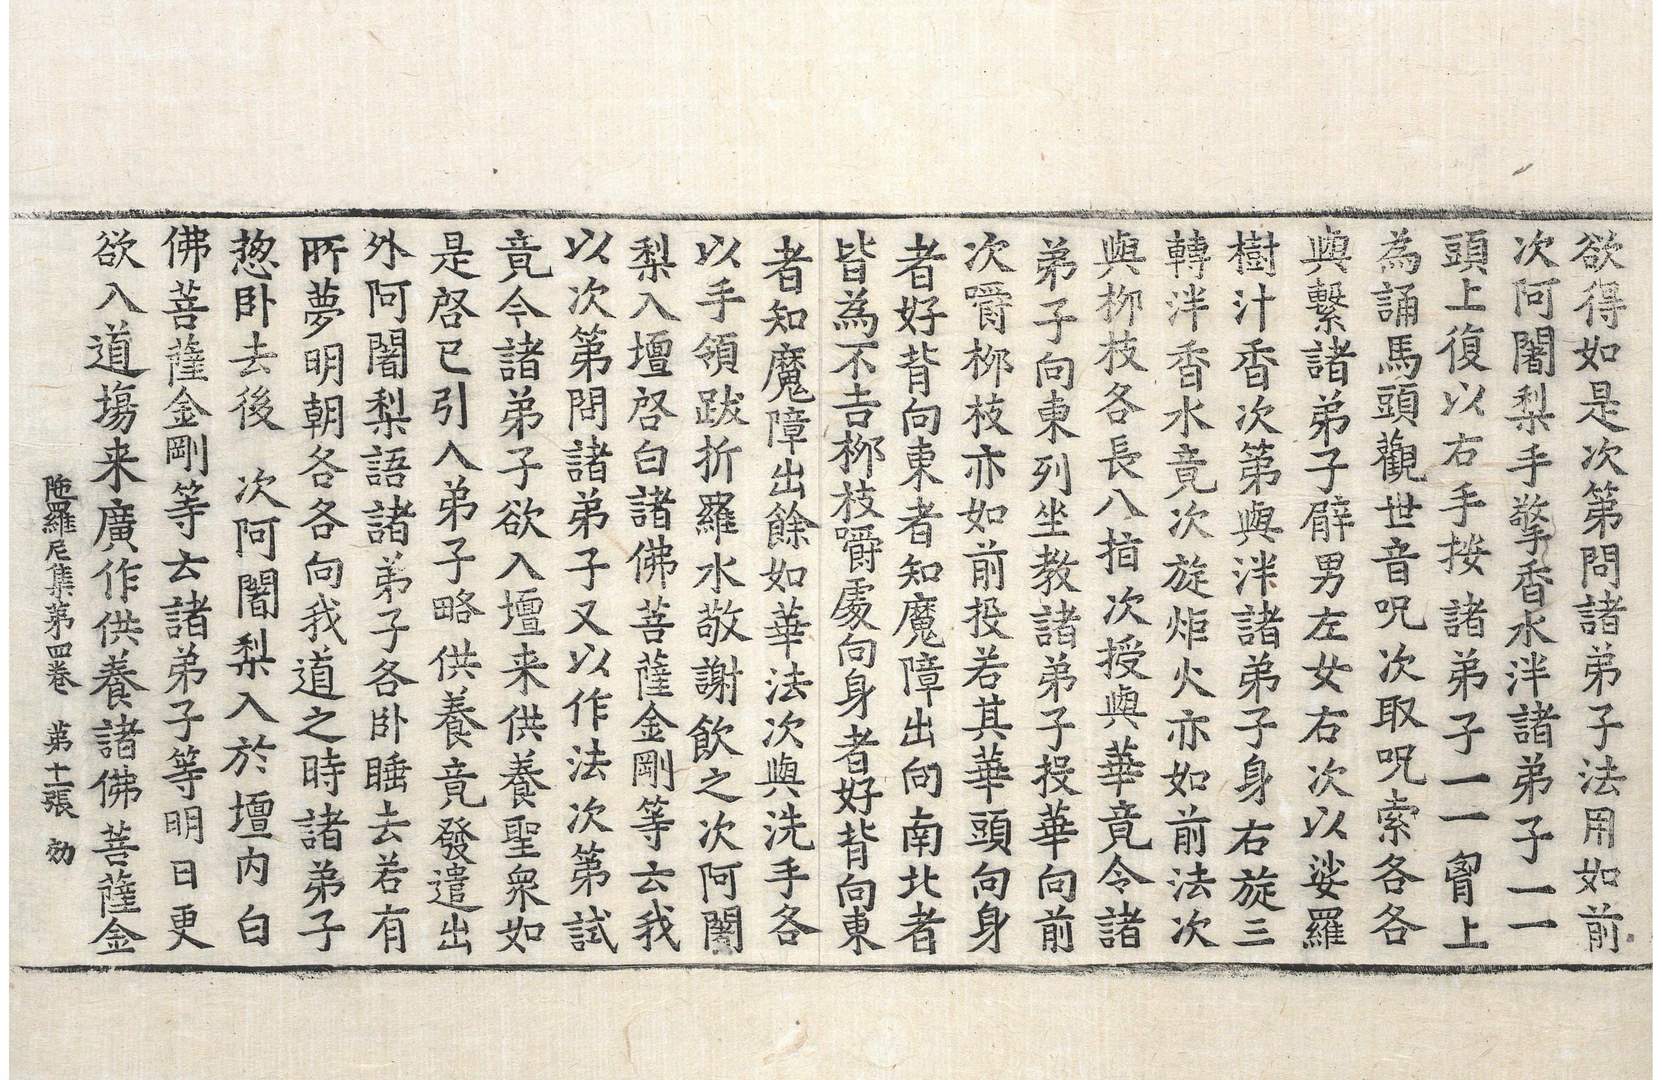 欲得如是次第問諸弟子法用如前
次阿闍梨手擎香水泮諸弟子一一
頭上復以右手按諸弟子一一胷上
為誦馬頭觀世音呪次取呪索各各
與繫諸弟子臂男左女右次以娑羅
樹汁香次第與泮諸弟子身右旋三
轉泮香水竟次旋炬火亦如前法次
與栁枝各長八指次授與華竟令諸
弟子向東列坐教諸弟子投華向前
次嚼栁枝亦如前投若其華頭向身
者好背向東者知魔障出向南北者
皆為不吉栁枝嚼處向身者好背向東
者知魔障出餘如華法次與洗手各
以手領跋折羅水敬謝飲之次阿闍
梨入壇啓白諸佛菩薩金剛等云我
以次第問諸弟子又以作法次第試
竟今諸弟子欲入壇来供養聖衆如
是啓已引入弟子略供養竟發遣出
外阿闍梨語諸弟子各卧睡去若有
所夢明朝各各向我道之時諸弟子
惣卧去後 次阿闍梨入於壇内白
佛菩薩金剛等云諸弟子等明日更
欲入道場来廣作供養諸佛菩薩金
陁羅尼集第四卷 第十二張 効